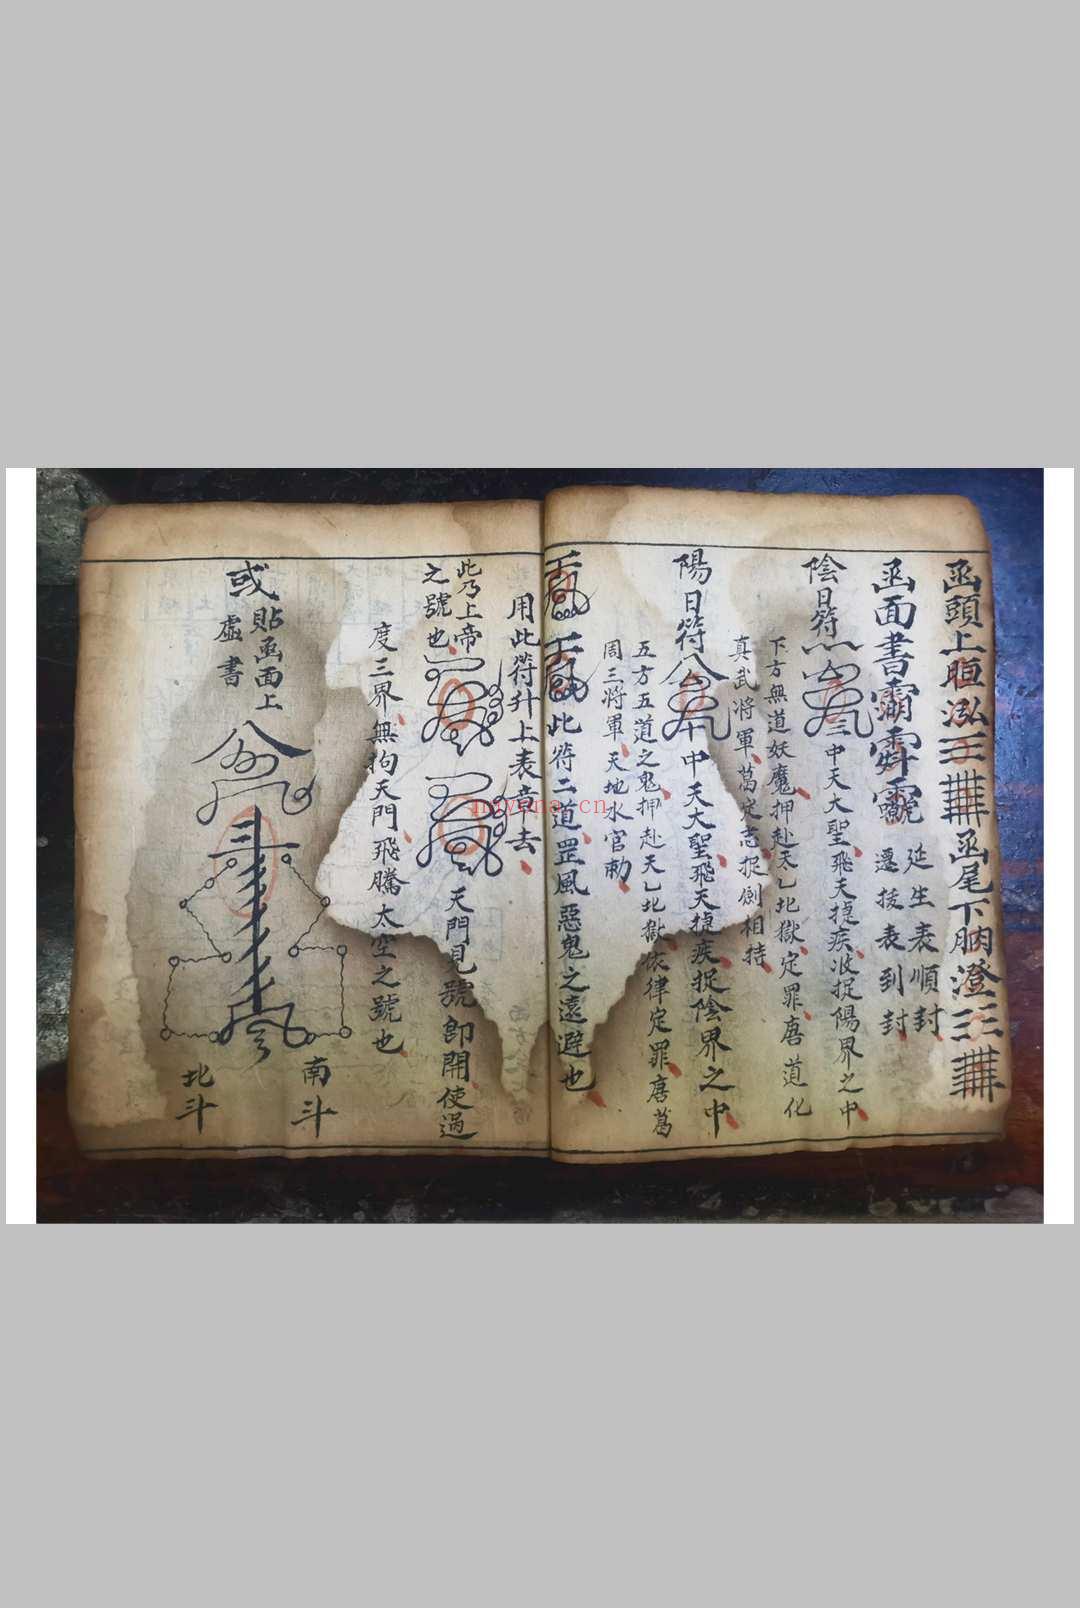 函頭上 泓 函尾下 澄
函面書 延生表順封
遷拔表到封
陰日符 中天大聖飛天捷疾 捉陽界之中
下方無道妖魔押赴天乙北獄定罪唐道化
真武將軍葛定志捉劍相持
陽日符 中天大聖飛天捷疾捉陰界之中
五方五道之鬼押赴天乙北獄依律定罪唐葛
周三將軍天地水官勅
此符二道罡風惡鬼之遠避也
用此符升上表章去
此乃上帝
之號也 天門見號即開使過
度三界無拘天門飛騰太空之號也
或貼函面上
虛書
南斗
北斗
nayona.cn